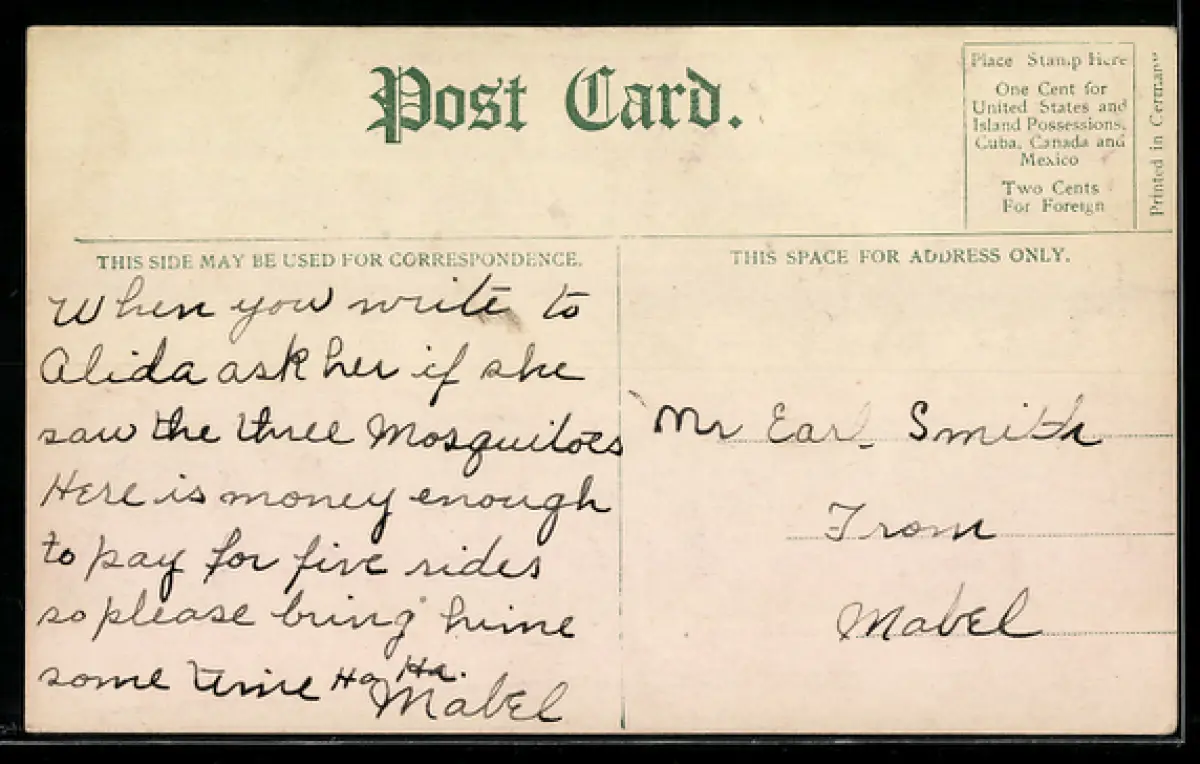 Post Card.
Place Stamp Here
One Cent for
United States and
Island Possessions,
Cuba, Canada and
Mexico
Two Cents
For Foreign
Printed in Germany
THIS SIDE MAY BE USED FOR CORRESPONDENCE.
THIS SPACE FOR ADDRESS ONLY.
When you write to
Alida ask her if she
saw the three Mosquitoes
Here is money enough
to pay for five rides
so please bring hime
some time Ha Ha.
Mabel
Mr Earl Smith
From
Mabel